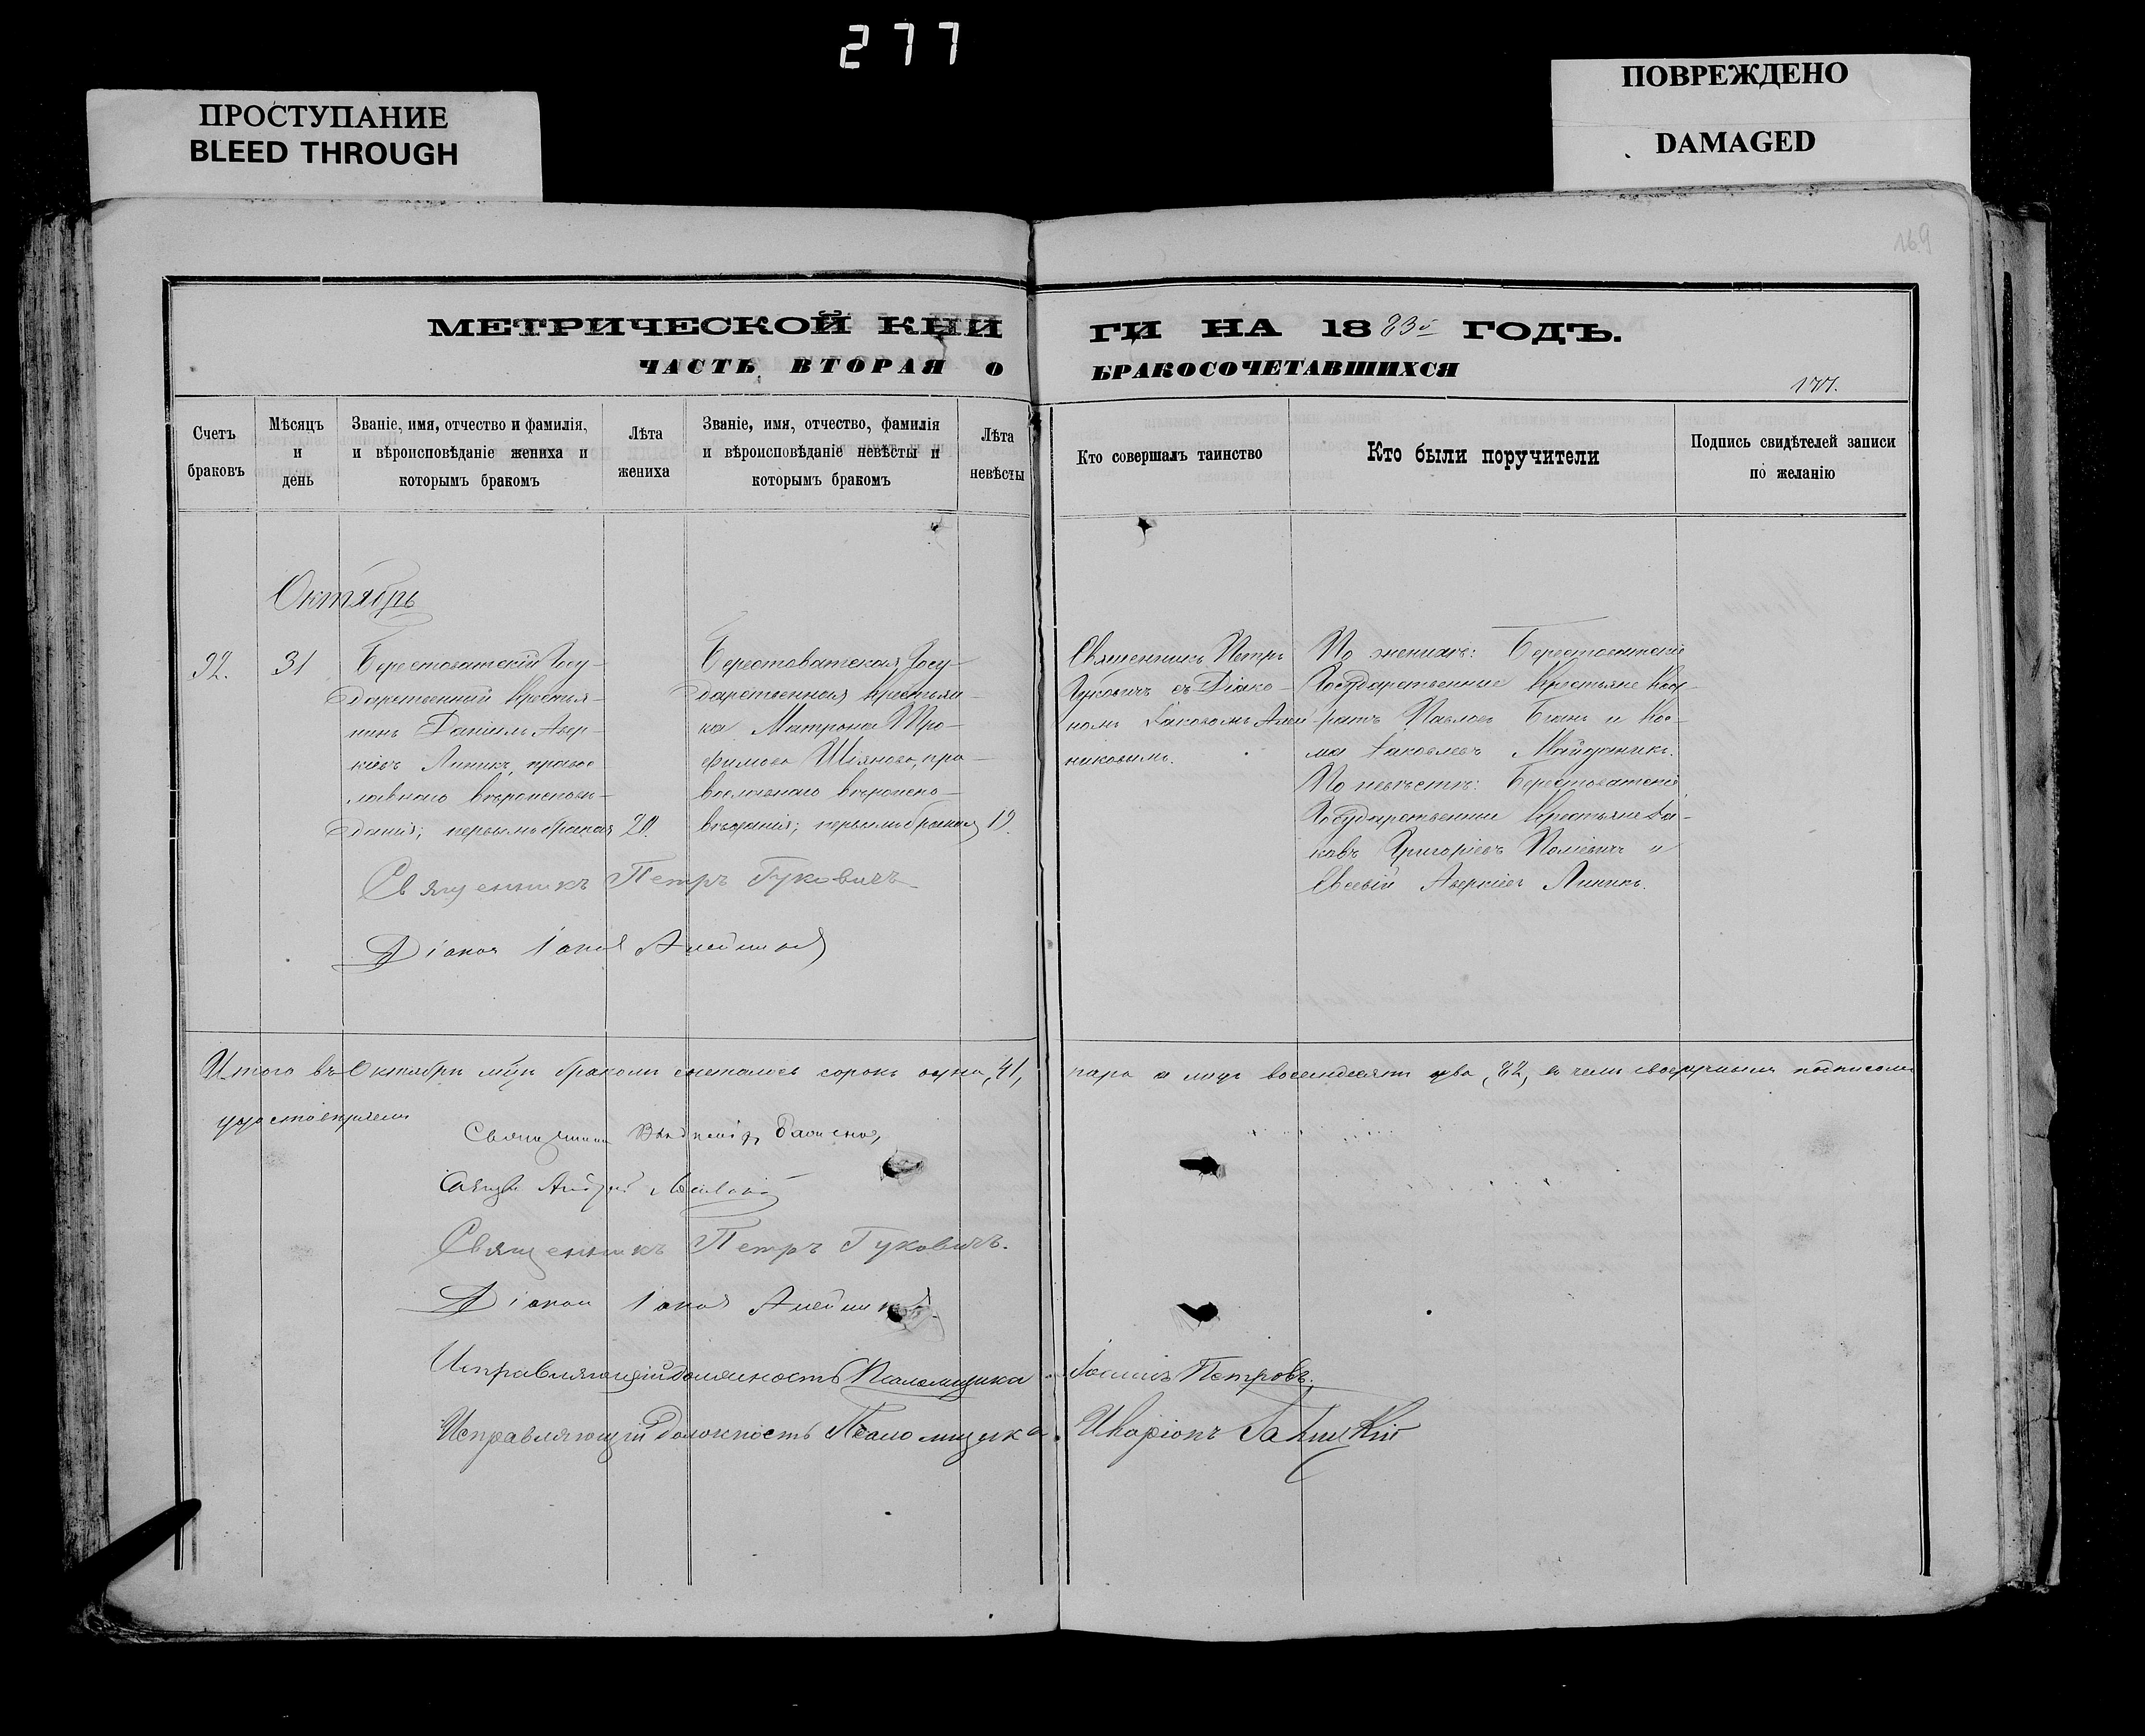 277
ПРОСТУПАНИЕ
BLEED THROUGH
ПОВРЕЖДЕНО
DAMAGED
169
МЕТРИЧЕСКОЙ КНИГИ НА 1883й ГОДЪ.
ЧАСТЬ ВТОРАЯ О БРАКОСОЧЕТАВШИХСЯ
177.
Счетъ
браковъ
Мѣсяцъ
и
день
Званіе, имя, отчество и фамилія,
и вѣроисповѣданіе жениха и
которымъ бракомъ
Лѣта
жениха
Званіе, имя, отчество, фамилія
и вѣроисповѣданіе невѣсты и
которымъ бракомъ
Лѣта
невѣсты
Кто совершалъ таинство
Кто были поручители
Подпись свидѣтелей записи
по желанію
Октябрь
32.
31
Берестоватскій Госу-
дарственный крестья-
нинъ Даніилъ Авер-
кіевъ Линикъ, право-
славнаго вѣроисповѣ-
данія; первымъ бракомъ
20.
Берестоватская Госу-
дарственная крестьян-
ка Матрона Тро-
фимова Шіянова, пра-
вославнаго вѣроиспо-
вѣданія; первымъ бракомъ
19.
Священникъ Петръ
Гуковичъ съ Діако-
номъ Іаковомъ Алей-
никовымъ.
По женихѣ: Берестоватскіе
Государственные Крестьяне Код-
ратъ Павловъ и Кос-
ма Іаковлевъ Майданикъ.
По невѣстѣ: Берестоватскіе
Государственные Крестьяне Іа-
ковъ Григоріевъ и
Евсевій Аверкіевъ Линикъ.
Священникъ Петръ Гуковичъ
Діаконъ Іаковъ Алейниковъ
Итого въ Октябрѣ м-цѣ бракомъ сочеталось сорокъ одна, 41, пара а лицъ восемьдесятъ два, 82, въ чемъ своеручнымъ подписомъ
удостовѣряемъ
Священникъ Владиміръ
Андрей
Священникъ Петръ Гуковичъ.
Діаконъ Іаковъ Алейниковъ
Исправляющій должность Псаломщика Іоаннъ Петровъ.
Исправляющій должность Псаломщика Иларіонъ